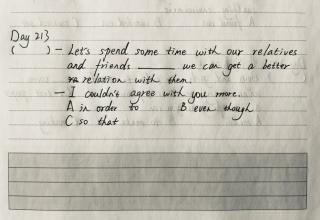 Day 213
( ) – Let's spend some time with our relatives
and friends ______ we can get a better
relation with them.
– I couldn't agree with you more.
A in order to B even though
C so that